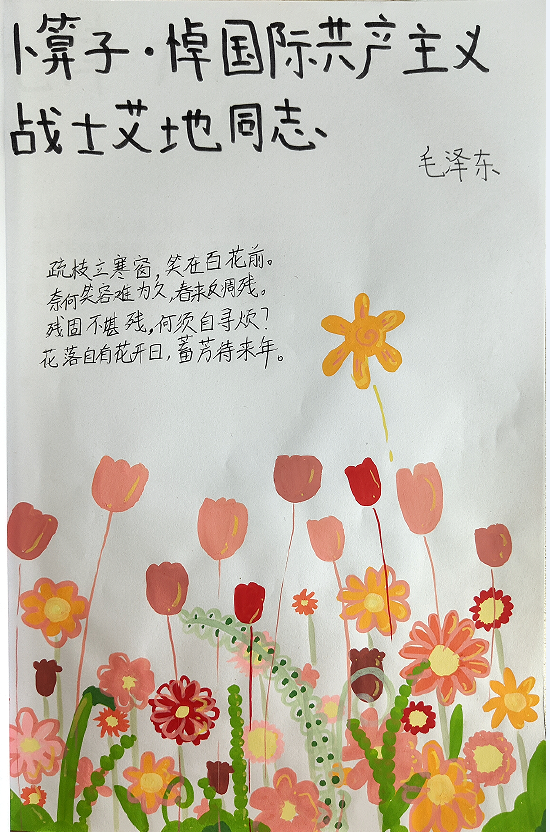 卜算子·悼国际共产主义
战士艾地同志
毛泽东
疏枝立寒窗，笑在百花前。
奈何笑容难为久，春来反凋残。
残固不堪残，何须自寻烦？
花落自有花开日，蓄芳待来年。